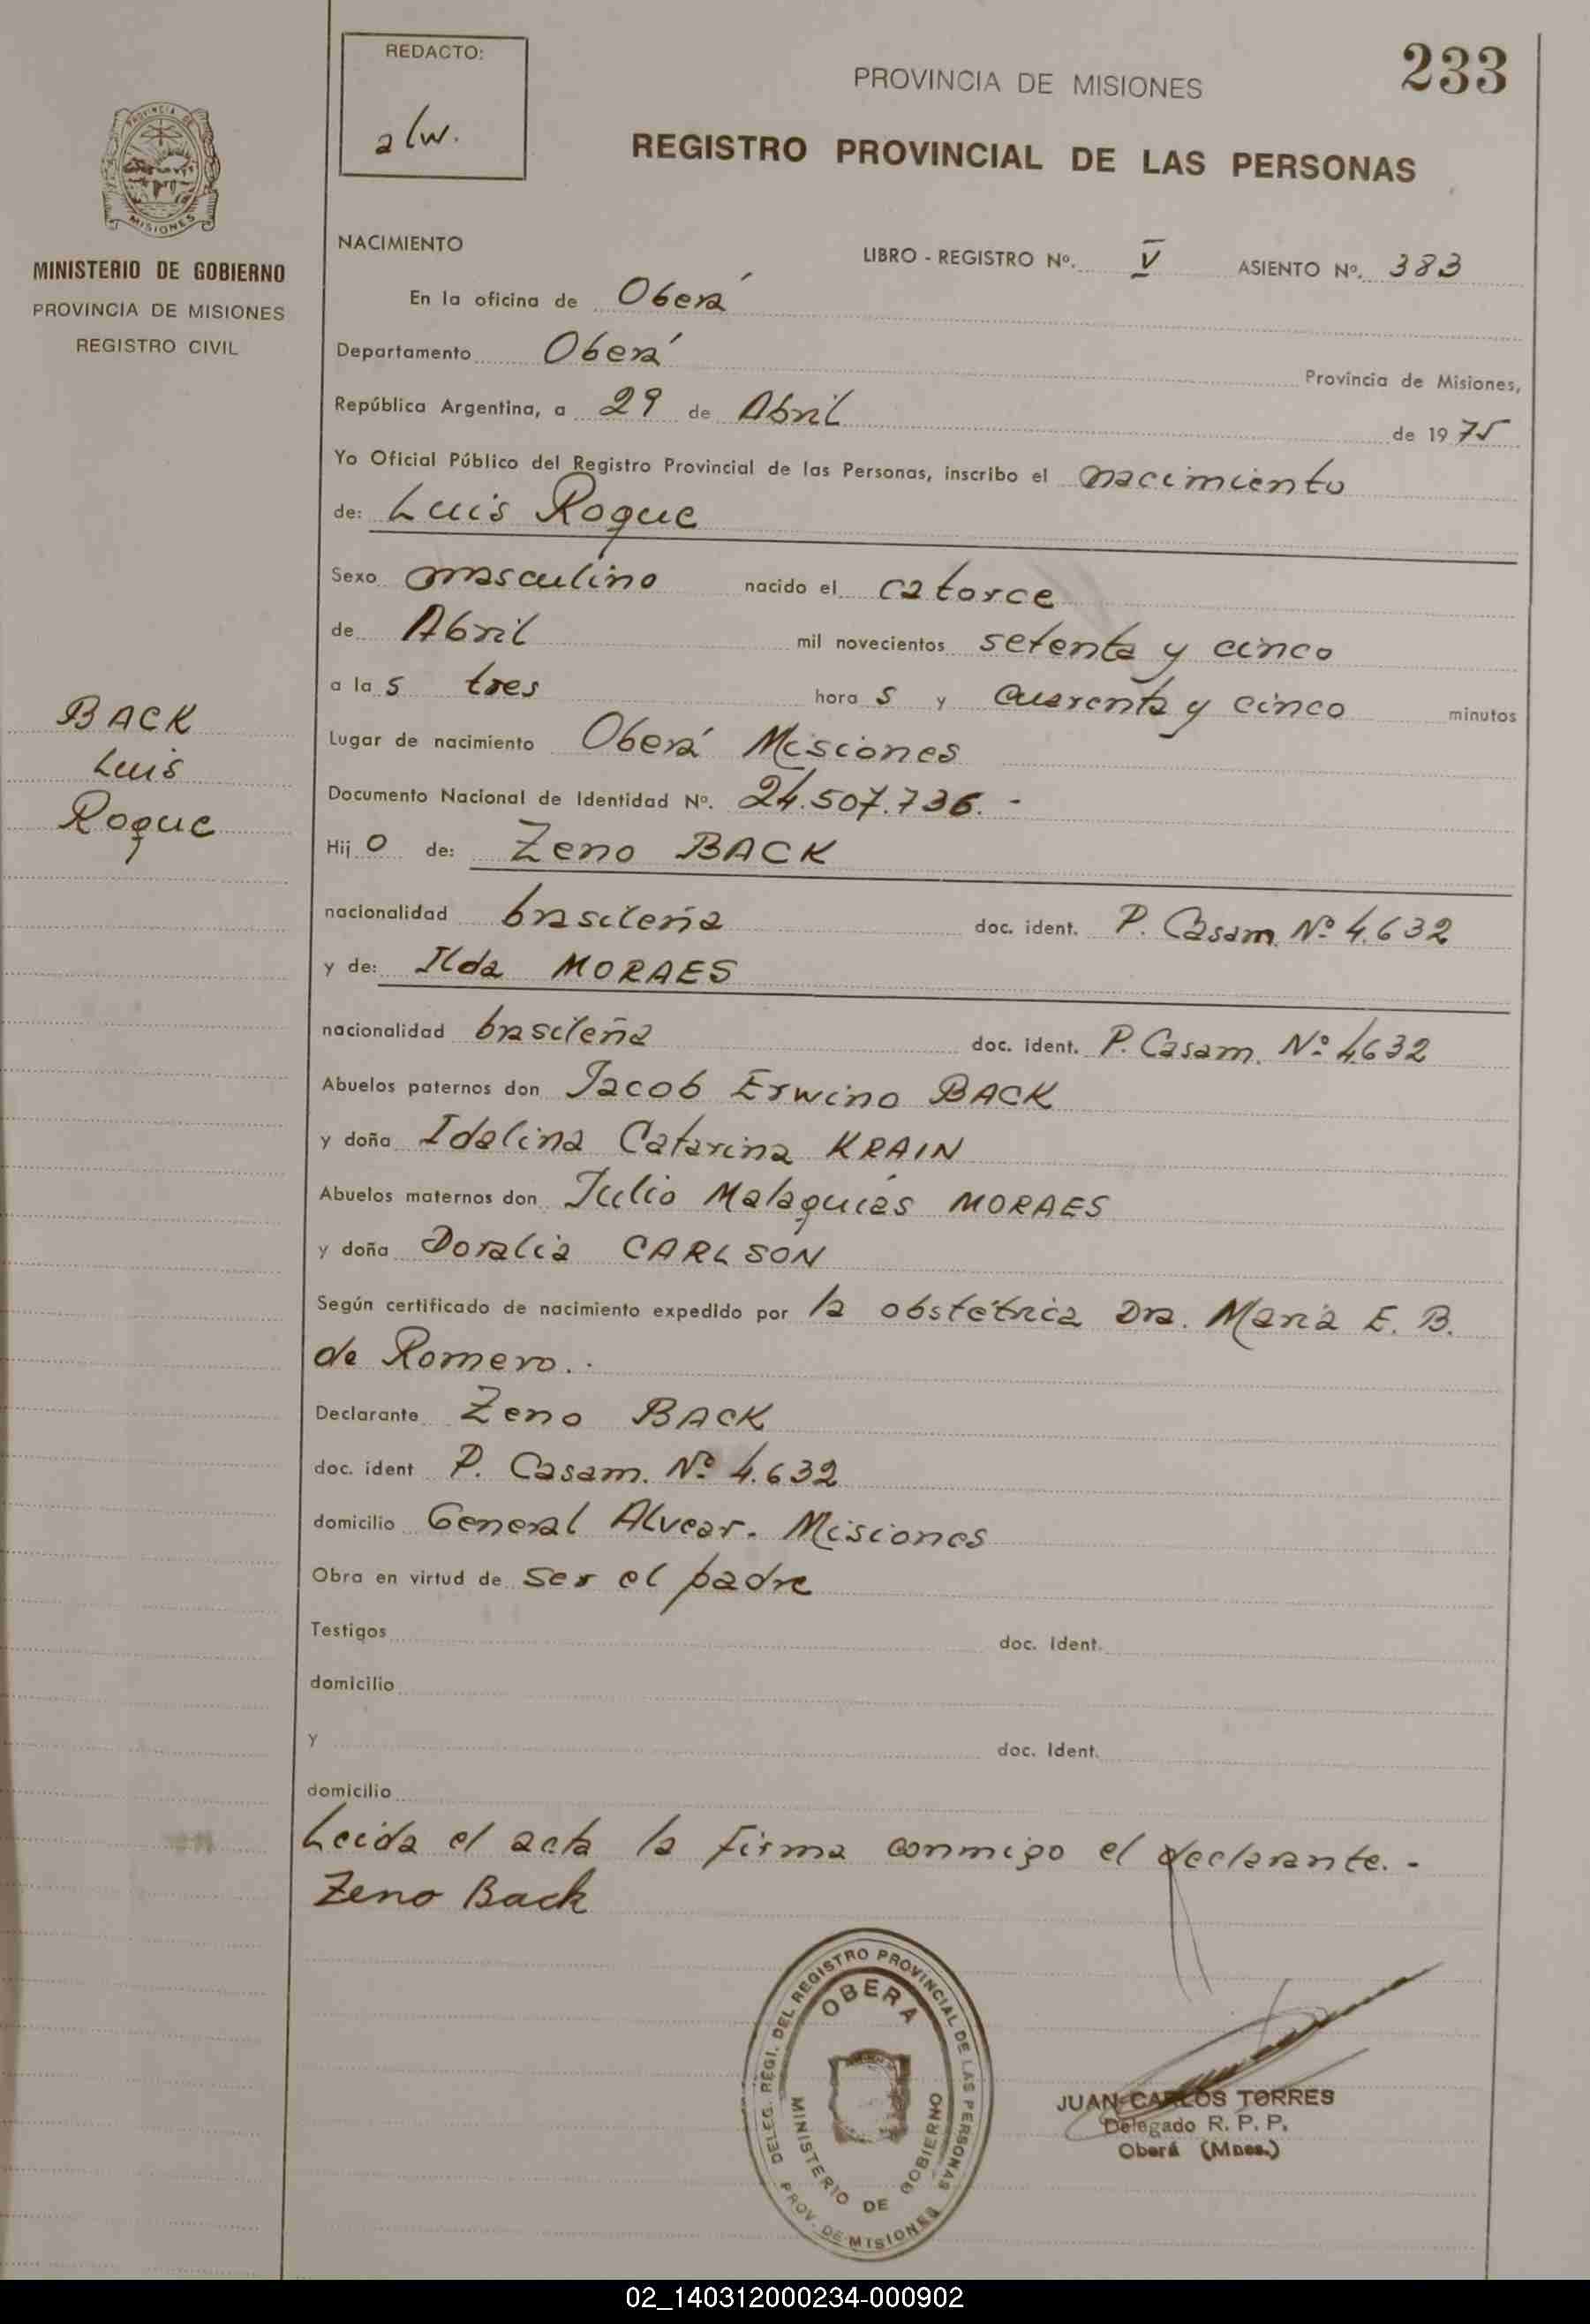 REDACTO:
alw.
233
PROVINCIA DE MISIONES
REGISTRO PROVINCIAL DE LAS PERSONAS
PROVINCIA DE
MISIONES
MINISTERIO DE GOBIERNO
PROVINCIA DE MISIONES
REGISTRO CIVIL
BACK
Luis
Roque
NACIMIENTO LIBRO - REGISTRO Nº. V ASIENTO Nº. 383
En la oficina de Oberá
Departamento Oberá Provincia de Misiones,
República Argentina, a 29 de Abril de 1975
Yo Oficial Público del Registro Provincial de las Personas, inscribo el nacimiento
de: Luis Roque
Sexo masculino nacido el catorce
de Abril mil novecientos setenta y cinco
a las tres horas y cuarenta y cinco minutos
Lugar de nacimiento Oberá Misiones
Documento Nacional de Identidad Nº. 24.507.736. -
Hijo de: Zeno BACK
nacionalidad brasileña doc. ident. P. Casam. Nº 4.632
y de: Ilda MORAES
nacionalidad brasileña doc. ident. P. Casam. Nº 4632
Abuelos paternos don Jacob Erwino BACK
y doña Idalina Catarina KRAIN
Abuelos maternos don Julio Malaquías MORAES
y doña Doralia CARLSON
Según certificado de nacimiento expedido por la obstétrica Dra. María E. B.
de Romero. -
Declarante Zeno BACK
doc. ident P. Casam. Nº 4.632
domicilio General Alvear. Misiones
Obra en virtud de ser el padre
Testigos doc. Ident.
domicilio
y doc. Ident.
domicilio
Leida el acta la firma conmigo el declarante. -
Zeno Back
DELEG. REGI. DEL REGISTRO PROVINCIAL DE LAS PERSONAS
OBERA
MINISTERIO DE GOBIERNO
PROV. DE MISIONES
JUAN CARLOS TORRES
Delegado R. P. P.
Oberá (Mnes.)
02_140312000234-000902